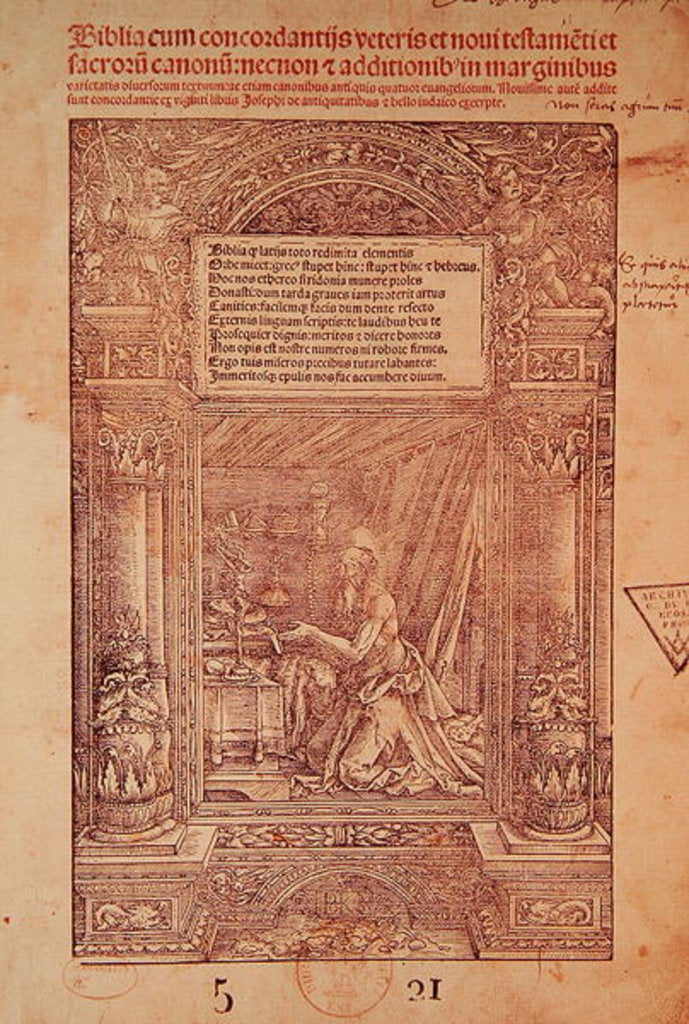 Biblia cum concordantijs veteris et noui testamēti et
sacrorū canonū: necnon ⁊ additionibꝰ in marginibus
varietatis diuersorum textuum: ac etiam canonibus antiquis quatuor euangeliorum. Nouissime autē addite
sunt concordantie ex viginti libris Josephi de antiquitatibus ⁊ bello iudaico excerpte.
Biblia q̄ latijs toto redimita elementis
Orbe micet: grecꝰ stupet hinc: stupet hinc ⁊ hebreus.
Hoc nos ethereo si ridonia munere proles
Donasti: dum tarda graues iam proterit artus
Canities: facilemq; facis dum dente refecto
Externis linguam scriptis: te laudibus heu te
Prosequier dignis: meritos ⁊ dicere honores
Non opis est nostre numeros ni robore firmes.
Ergo tuis miseros precibus tutare labantes:
Immeritosq; epulis nos fac accumbere diuum.
5 21